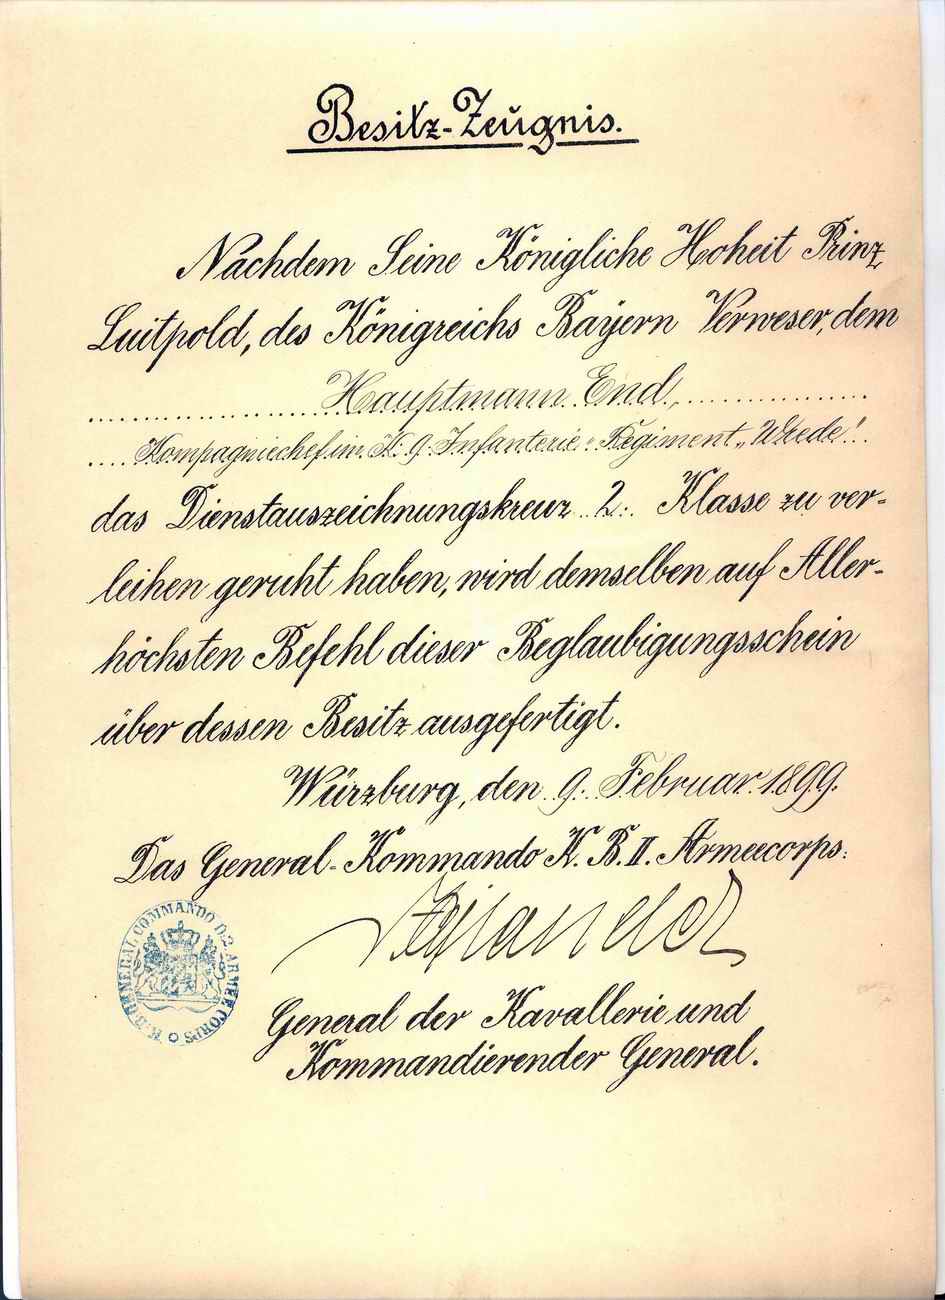 Besitz-Zeugnis.
Nachdem Seine Königliche Hoheit Prinz
Luitpold, des Königreichs Bayern Verweser, dem
Hauptmann End,
Kompagniechef im K. 9. Infanterie-Regiment „Wrede“
das Dienstauszeichnungskreuz 2. Klasse zu ver-
leihen geruht haben, wird demselben auf Aller-
höchsten Befehl dieser Beglaubigungsschein
über dessen Besitz ausgefertigt.
Würzburg, den 9. Februar 1899.
Das General-Kommando K. B. II. Armeecorps:
K. B. GENERAL COMMANDO D. 2. ARMEE CORPS
General der Kavallerie und
Kommandierender General.